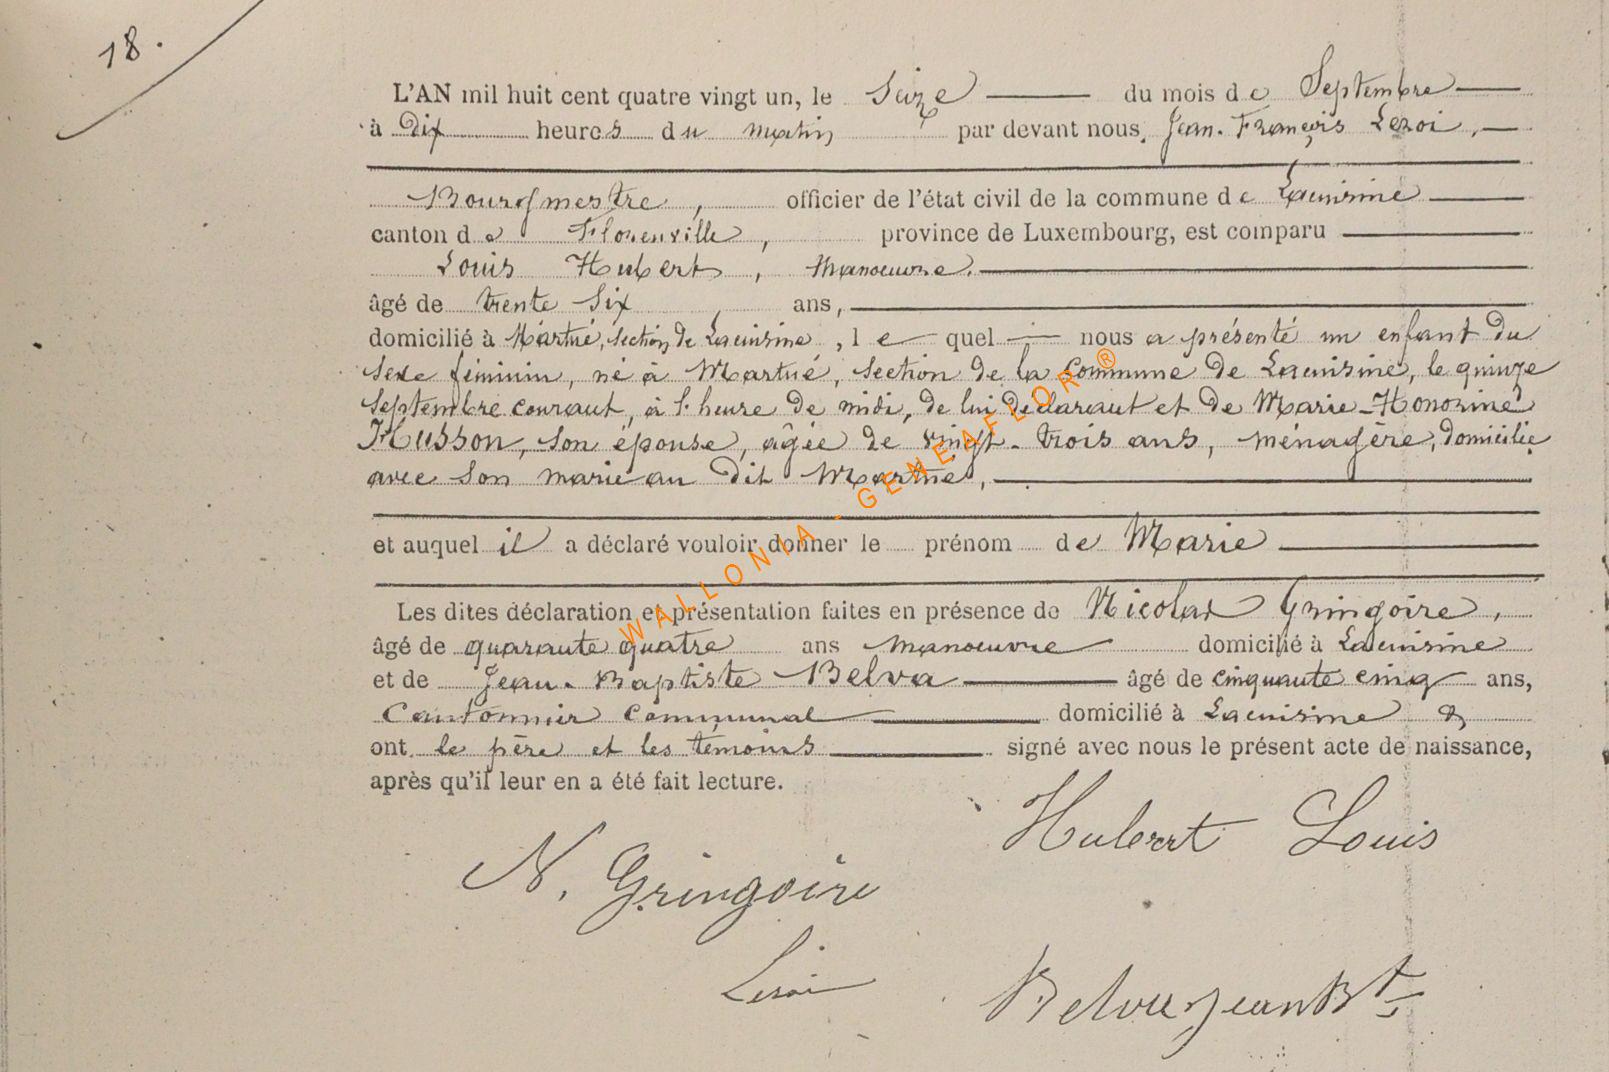 18.
L'AN mil huit cent quatre vingt un, le Seize du mois de Septembre
à Dix heures du matin par devant nous, Jean-François Leroi,
Bourgmestre, officier de l'état civil de la commune de Lacuisine
canton de Florenville, province de Luxembourg, est comparu
Louis Hubert, Manoeuvre.
âgé de trente Six ans,
domicilié à Martué, section de Lacuisine, le quel nous a présenté un enfant du
Sexe féminin, né à Martué, section de la Commune de Lacuisine, le quinze
Septembre courant, à 1. heure de midi, de lui déclarant et de Marie-Honorine
Husson, son épouse, agée de vingt-trois ans, ménagère, domicilie
avec son marie au dit Martué,
et auquel il a déclaré vouloir donner le prénom de Marie
Les dites déclaration et présentation faites en présence de Nicolas Gringoire,
âgé de quarante quatre ans Manoeuvre domicilié à Lacuisine
et de Jean-Baptiste Belva âgé de cinquante cinq ans,
Cantonnier Communal domicilié à Lacuisine &
ont le père et les témoins signé avec nous le présent acte de naissance,
après qu'il leur en a été fait lecture.
Hubert Louis
N. Gringoire
Leroi
Belva jean Bt
WALLONIA - GENEAFLOR ®